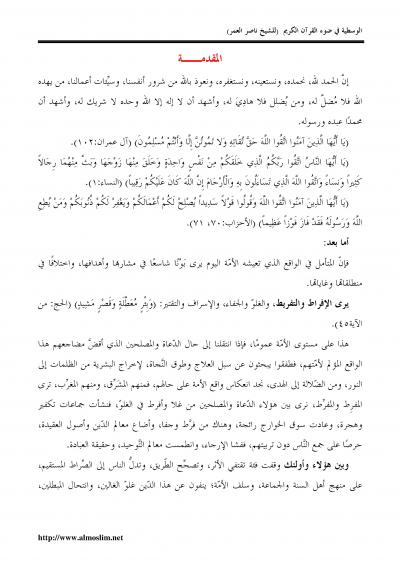 الوسطية في ضوء القرآن الكريم (للشيخ ناصر العمر)
المقدمـــــة
إنَّ الحمد لله، نحمده، ونستعينه، ونستغفره، ونعوذ بالله من شرور أنفسنا، وسيِّئات أعمالنا، من يهده
الله فلا مُضلّ له، ومن يُضلل فلا هاديَ له، وأشهد أن لا إله إلا الله وحده لا شريك له، وأشهد أن
محمدًا عبده ورسوله.
(يَا أَيُّهَا الَّذِينَ آمَنُوا اتَّقُوا اللَّهَ حَقَّ تُقَاتِهِ وَلا تَمُوتُنَّ إِلَّا وَأَنْتُمْ مُسْلِمُونَ) (آل عمران:١٠٢).
(يَا أَيُّهَا النَّاسُ اتَّقُوا رَبَّكُمُ الَّذِي خَلَقَكُمْ مِنْ نَفْسٍ وَاحِدَةٍ وَخَلَقَ مِنْهَا زَوْجَهَا وَبَثَّ مِنْهُمَا رِجَالاً
كَثِيراً وَنِسَاءً وَاتَّقُوا اللَّهَ الَّذِي تَسَاءَلُونَ بِهِ وَالْأَرْحَامَ إِنَّ اللَّهَ كَانَ عَلَيْكُمْ رَقِيباً) (النساء:١).
(يَا أَيُّهَا الَّذِينَ آمَنُوا اتَّقُوا اللَّهَ وَقُولُوا قَوْلاً سَدِيداً يُصْلِحْ لَكُمْ أَعْمَالَكُمْ وَيَغْفِرْ لَكُمْ ذُنُوبَكُمْ وَمَنْ يُطِعِ
اللَّهَ وَرَسُولَهُ فَقَدْ فَازَ فَوْزاً عَظِيماً) (الأحزاب:٧٠، ٧١).
أما بعد:
فإنّ المتأمل في الواقع الذي تعيشه الأمّة اليوم يرى بَوْنًا شاسعًا في مشاربها وأهدافها، واختلافًا في
منطلقاتها وغاياتها.
يرى الإفراط والتفريط، والغلوّ والجفاء، والإسراف والتقتير: (وَبِئْرٍ مُعَطَّلَةٍ وَقَصْرٍ مَشِيدٍ) (الحج: من
الآية٤٥).
هذا على مستوى الأمّة عمومًا، فإذا انتقلنا إلى حال الدّعاة والمصلحين الذي أقضَّ مضاجعهم هذا
الواقع المؤلم لأمّتهم، فطفقوا يبحثون عن سبل العلاج وطوق النّجاة، لإخراج البشرية من الظلمات إلى
النور، ومن الضّلالة إلى الهدى، نجد انعكاس واقع الأمة على حالهم، فمنهم المشرِّق، ومنهم المغرِّب، ترى
المفرِط والمفرِّط، ترى بين هؤلاء الدّعاة والمصلحين من غلا وأفرط في الغلوّ، فنشأت جماعات تكفير
وهجرة، وعادت سوق الخوارج رائجة، وهناك من فرَّط وجفا، وأضاع معالم الدّين وأصول العقيدة،
حرصًا على جمع النّاس دون تربيتهم، ففشا الإرجاء، وانطمست معالم التَّوحيد، وحقيقة العبادة.
وبين هؤلاء وأولئك وقفت فئة تقتفي الأثر، وتصحِّح الطّريق، وتدلُّ الناس إلى الصّراط المستقيم،
على منهج أهل السنة والجماعة، وسلف الأمّة؛ ينفون عن هذا الدّين غلوّ الغالين، وانتحال المبطلين،
http://www.almoslim.net